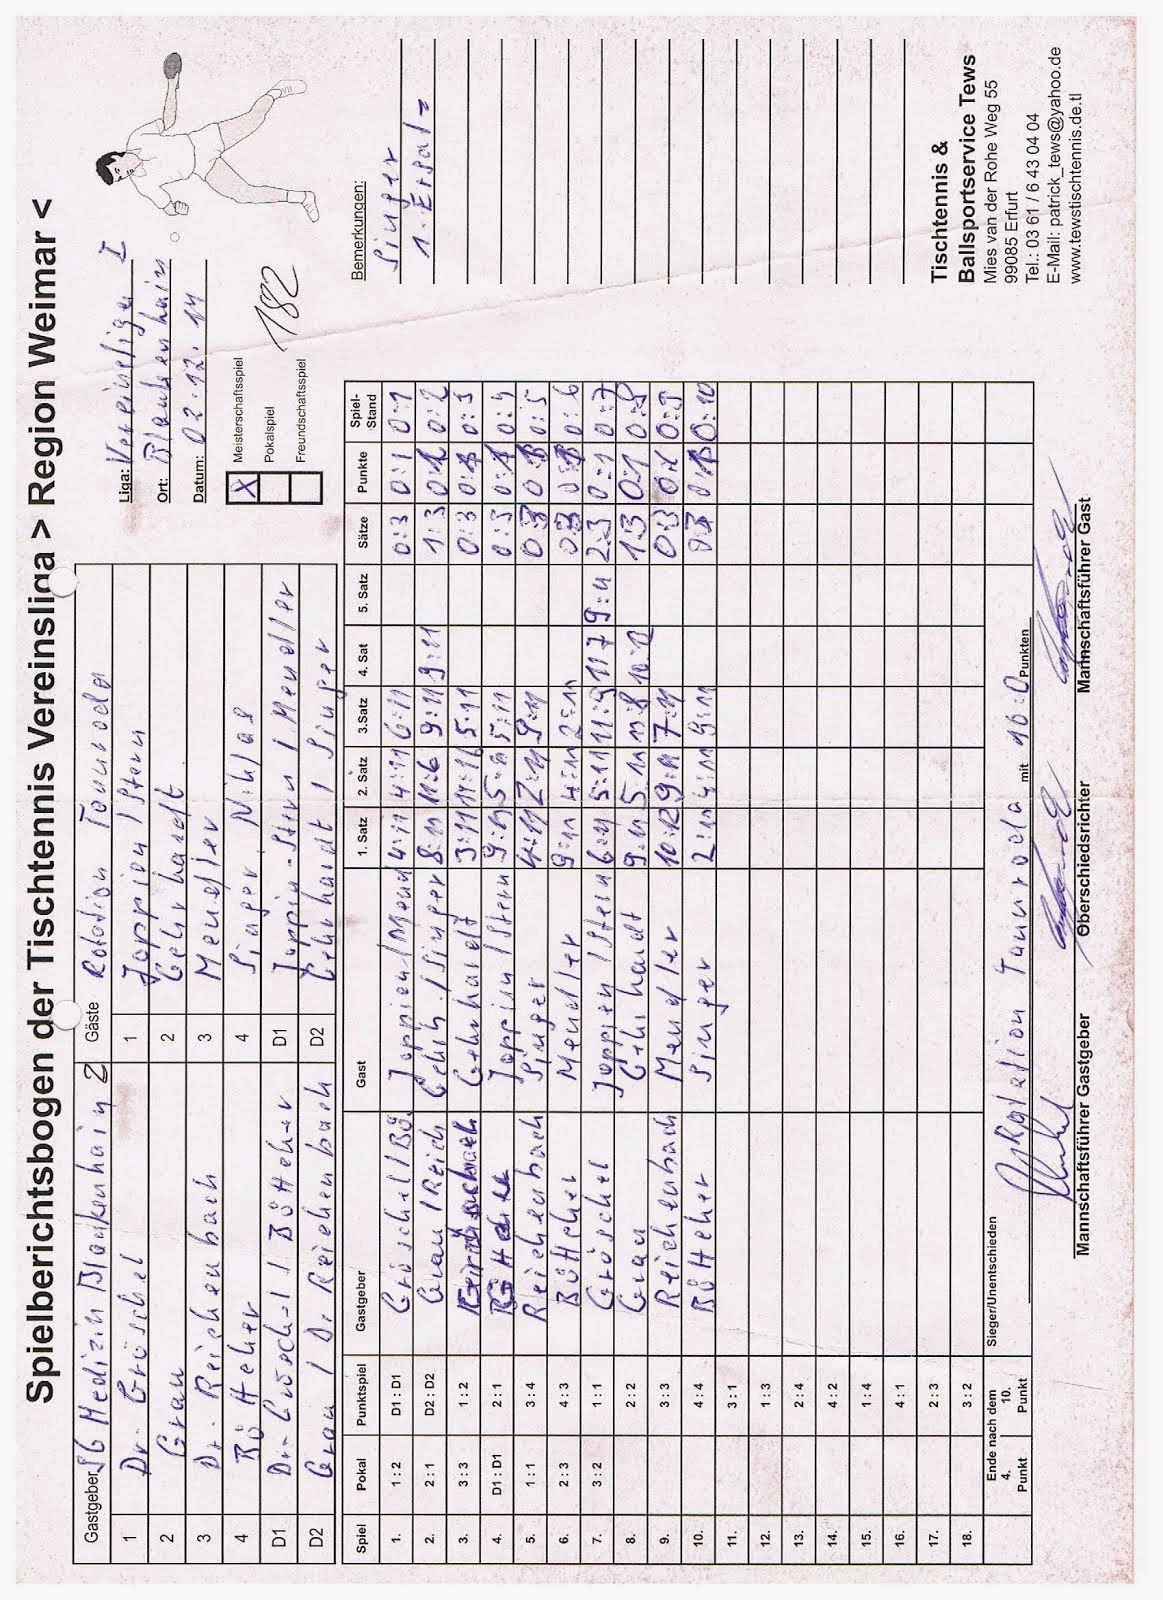 Spielberichtsbogen der Tischtennis Vereinsliga > Region Weimar <
Gastgeber SG Medizin Blankenhain 2 Gäste Rotation Tannroda
1 Dr. Gröschel 1 Joppien / Stern
2 Grau 2 Gehrhardt
3 Dr. Reichenbach 3 Mendler
4 Böttcher 4 Singer Niklas
D1 Dr. Gröschel / Böttcher D1 Joppin-Stern / Mendler
D2 Grau / Dr Reichenbach D2 Gehrhardt / Singer
Liga: Vereinsliga I
Ort: Blankenhain
Datum: 02.12.14
X Meisterschaftsspiel
Pokalspiel
Freundschaftsspiel
182
Spiel Pokal Punktspiel Gastgeber Gast 1. Satz 2. Satz 3.Satz 4. Sat 5. Satz Sätze Punkte Spiel-Stand
1. 1 : 2 D1 : D1 Gröschel / Bö Joppien / Mend 4:11 4:11 6:11 0:3 0:1 0:1
2. 2 : 1 D2 : D2 Grau / Reich Gehrh. / Singer 8:11 11:6 9:11 9:11 1:3 0:1 0:2
3. 3 : 3 1 : 2 Gehrhardt 3:11 14:16 5:11 0:3 0:1 0:3
4. D1 : D1 2 : 1 Joppien / Stern 9:11 5:11 5:11 0:3 0:1 0:4
5. 1 : 1 3 : 4 Reichenbach Singer 4:11 2:11 9:11 0:3 0:1 0:5
6. 2 : 3 4 : 3 Böttcher Mendler 9:11 4:11 2:11 0:3 0:1 0:6
7. 3 : 2 1 : 1 Gröschel Joppien / Stern 6:11 5:11 11:9 11:7 9:11 2:3 0:1 0:7
8. 2 : 2 Grau Gehrhardt 9:11 5:11 11:8 10:12 1:3 0:1 0:8
9. 3 : 3 Reichenbach Mendler 10:12 9:11 7:11 0:3 0:1 0:9
10. 4 : 4 Böttcher Singer 2:11 4:11 9:11 0:3 0:1 0:10
11. 3 : 1
12. 1 : 3
13. 2 : 4
14. 4 : 2
15. 1 : 4
16. 4 : 1
17. 2 : 3
18. 3 : 2
Ende nach dem
4. Punkt 10. Punkt
Sieger/Unentschieden Rotation Tannroda mit 10:0 Punkten
Mannschaftsführer Gastgeber Oberschiedsrichter Mannschaftsführer Gast
Bemerkungen:
Singer
1. Ersatz
Tischtennis &
Ballsportservice Tews
Mies van der Rohe Weg 55
99085 Erfurt
Tel.: 03 61 / 6 43 04 04
E-Mail: patrick_tews@yahoo.de
www.tewstischtennis.de.tl